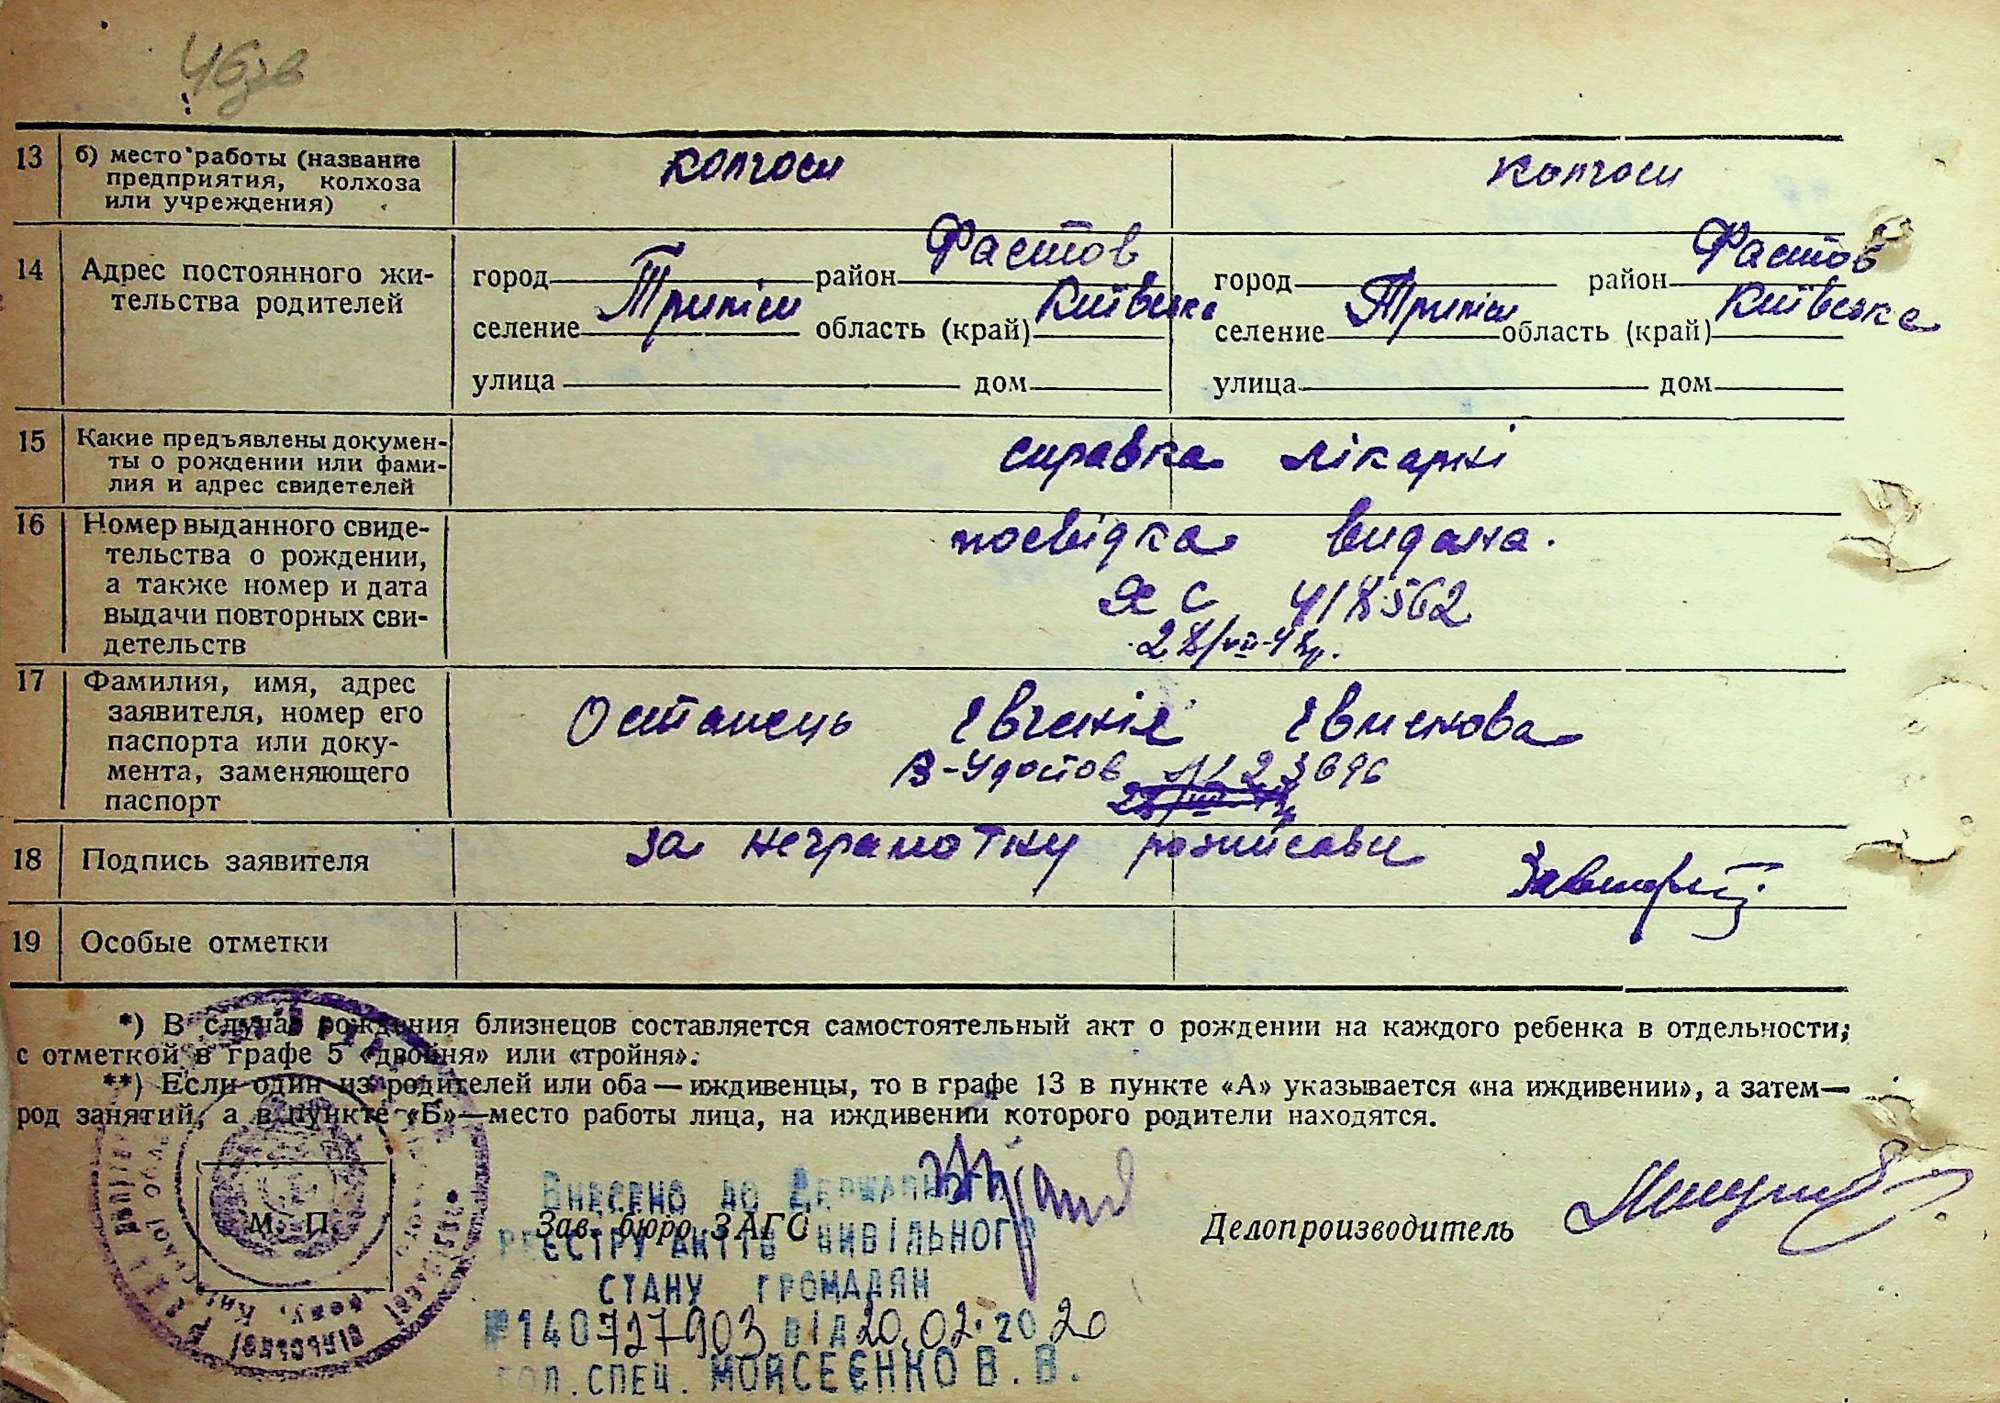 13 б) место работы (название предприятия, колхоза или учреждения) колгосп колгосп
14 Адрес постоянного жительства родителей
город район Фастов город район Фастов
селение Триліси область (край) Київська селение Триліси область (край) Київське
улица дом улица дом
15 Какие предъявлены документы о рождении или фамилия и адрес свидетелей справка лікарні
16 Номер выданного свидетельства о рождении, а также номер и дата выдачи повторных свидетельств посвідка видана.
ЯС 418562
28/VII-48р.
17 Фамилия, имя, адрес заявителя, номер его паспорта или документа, заменяющего паспорт Остапець Євгенія
В-Удостов № 23696
18 Подпись заявителя за неграмотну розписавси
19 Особые отметки
*) В случае рождения близнецов составляется самостоятельный акт о рождении на каждого ребенка в отдельности,
с отметкой в графе 5 «двойня» или «тройня».
**) Если один из родителей или оба — иждивенцы, то в графе 13 в пункте «А» указывается «на иждивении», а затем—
род занятий, а в пункте «Б»—место работы лица, на иждивении которого родители находятся.
М. П.
Зав. бюро ЗАГС
Делопроизводитель
Внесено до Державного
реєстру актів цивільного
стану громадян
№140727903 від 20.02.2020
гол. спец. Мойсеєнко В. В.